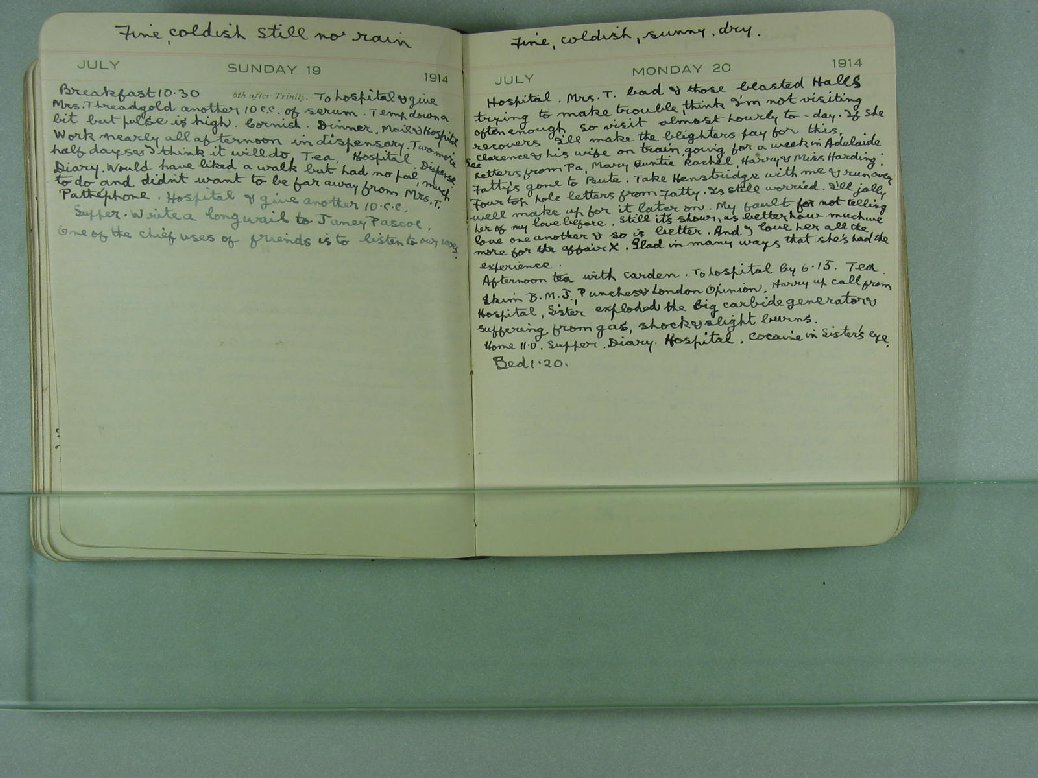 Fine, coldish still no rain
JULY SUNDAY 19 1914
Breakfast 10.30 6th after Trinity. To hospital & give
Mrs. Threadgold another 10 C.C. of serum. Temp down a
bit but pulse is high. Cornish. Dinner, Mail & Hospital
Work nearly all afternoon in dispensary. Two more
half days & I think it will do. Tea. Hospital Dispense
Diary. Would have liked a walk but had no pal, much
to do and didn't want to be far away from Mrs. T.
Pathéphone. Hospital & give another 10. C.C.
Supper. Write a long wail to Janey Pascoe.
One of the chief uses of friends is to listen to our woes.
Fine, coldish, sunny, dry.
JULY MONDAY 20 1914
Hospital. Mrs. T. bad & those blasted Halls
trying to make trouble, think I'm not visiting
often enough, so visit almost hourly to-day. If she
recovers I'll make the blighters pay for this.
Clarence & his wife on train going for a week in Adelaide
Letters from Pa, Mary, Auntie Rachel, Harry & Miss Harding.
Fatty's gone to Bute. Take with me & run over
Four letters from Fatty. Is still worried. I'll jolly
well make up for it later on. My fault for not telling
her of my love before. Still it's shown us better how much we
love one another & so is better. And I love her all the
more for the affair X. Glad in many ways that she's had the
experience.
Afternoon tea with Carden. To hospital by 6.15. Tea.
Skim B.M.J., Punches & London Opinion. Hurry up call from
Hospital, Sister exploded the big carbide generator &
suffering from gas, shock & slight burns.
Home 11.0. Supper. Diary. Hospital. Cocaine in Sister's eye.
Bed 1.20.